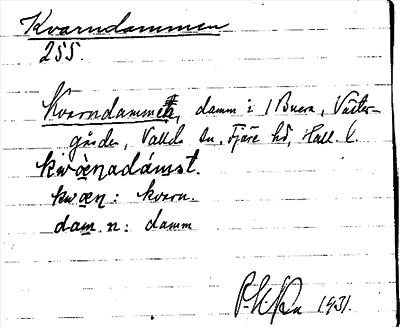 Kvarndammen
255.
Kvarndammen, damm i 1 Buera, Väster-
gården, Vallda sn, Fjäre hd, Hall. l.
kwæ̀ṇadámst.
kwæṇ: kvarn.
dam. n: damm
1931.